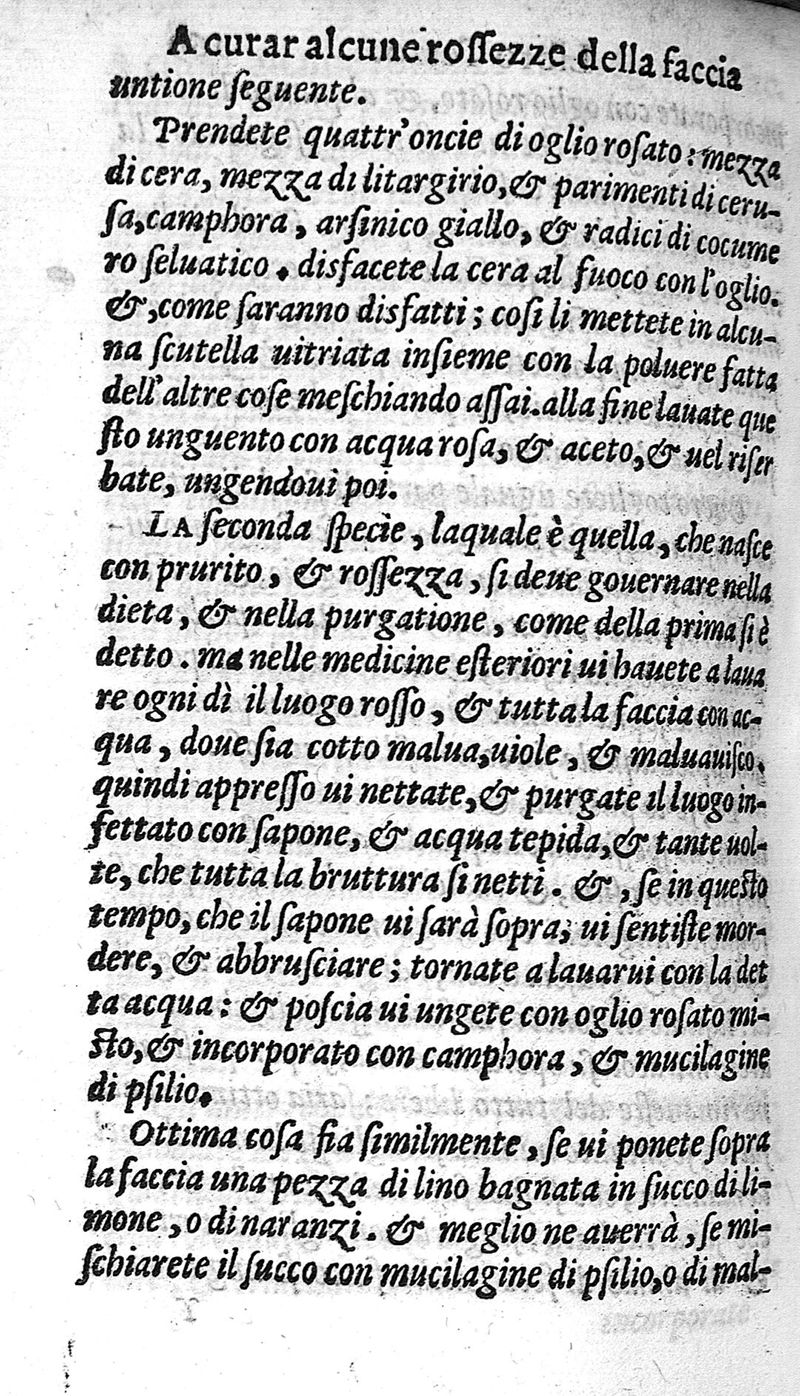 A curar alcune roſſezze della faccia
untione ſeguente.
Prendete quattr'oncie di oglio roſato: mezza
di cera, mezza di litargirio, & parimenti di ceru-
ſa, camphora, arſinico giallo, & radici di cocume
ro ſeluatico. disfacete la cera al fuoco con l'oglio.
&, come ſaranno disfatti; coſi li mettete in alcu-
na ſcutella uitriata inſieme con la poluere fatta
dell'altre coſe meſchiando aſſai. alla fine lauate que
ſto unguento con acqua roſa, & aceto, & uel riſer
bate, ungendoui poi.
LA ſeconda ſpecie, laquale è quella, che naſce
con prurito, & roſſezza, ſi deue gouernare nella
dieta, & nella purgatione, come della prima ſi è
detto. ma nelle medicine eſteriori ui hauete a laua
re ogni dì il luogo roſſo, & tutta la faccia con ac-
qua, doue ſia cotto malua, uiole, & maluauiſco.
quindi appreſſo ui nettate, & purgate il luogo in-
fettato con ſapone, & acqua tepida, & tante uol-
te, che tutta la bruttura ſi netti. &, ſe in queſto
tempo, che il ſapone ui ſarà ſopra; ui ſentiſte mor-
dere, & abbruſciare; tornate a lauarui con la det
ta acqua: & poſcia ui ungete con oglio roſato mi-
ſto, & incorporato con camphora, & mucilagine
di pſilio.
Ottima coſa fia ſimilmente, ſe ui ponete ſopra
la faccia una pezza di lino bagnata in ſucco di li-
mone, o di naranzi. & meglio ne auerrà, ſe mi-
ſchiarete il ſucco con mucilagine di pſilio, o di mal-